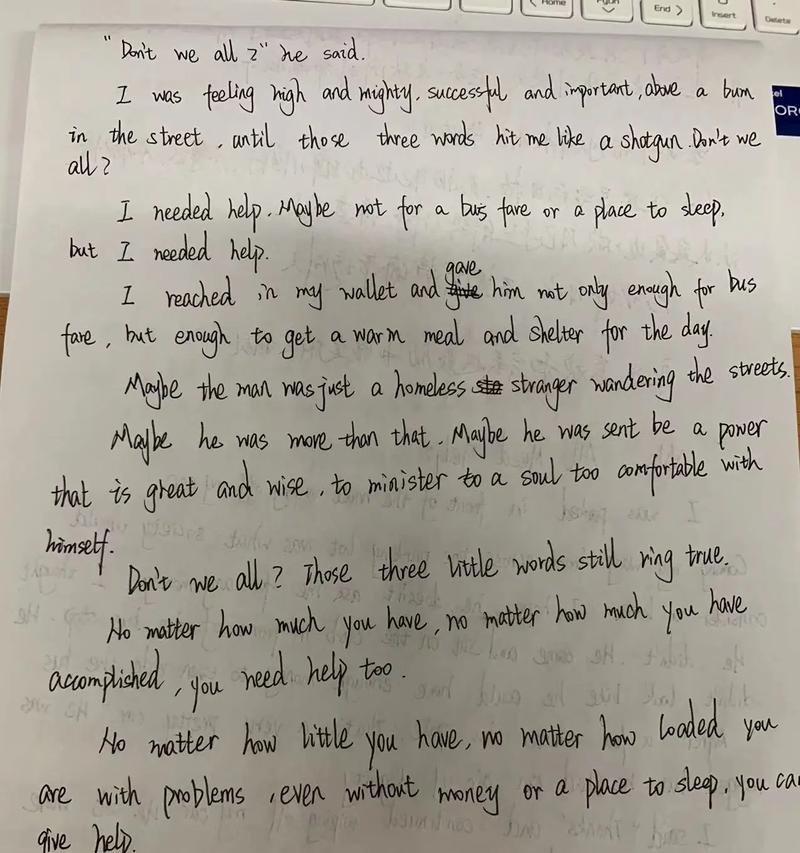 Home
End >
Insert
Delete
OR
"Don't we all?" he said.
I was feeling high and mighty, successful and important, above a bum
in the street, until those three words hit me like a shotgun. Don't we
all?
I needed help. Maybe not for a bus fare or a place to sleep,
but I needed help.
I reached in my wallet and gave him not only enough for bus
fare, but enough to get a warm meal and shelter for the day.
Maybe the man was just a homeless stranger wandering the streets.
Maybe he was more than that. Maybe he was sent be a power
that is great and wise, to minister to a soul too comfortable with
himself.
Don't we all? Those three little words still ring true.
No matter how much you have, no matter how much you have
accomplished, you need help too.
No matter how little you have, no matter how loaded you
are with problems, even without money or a place to sleep, you can
give help.